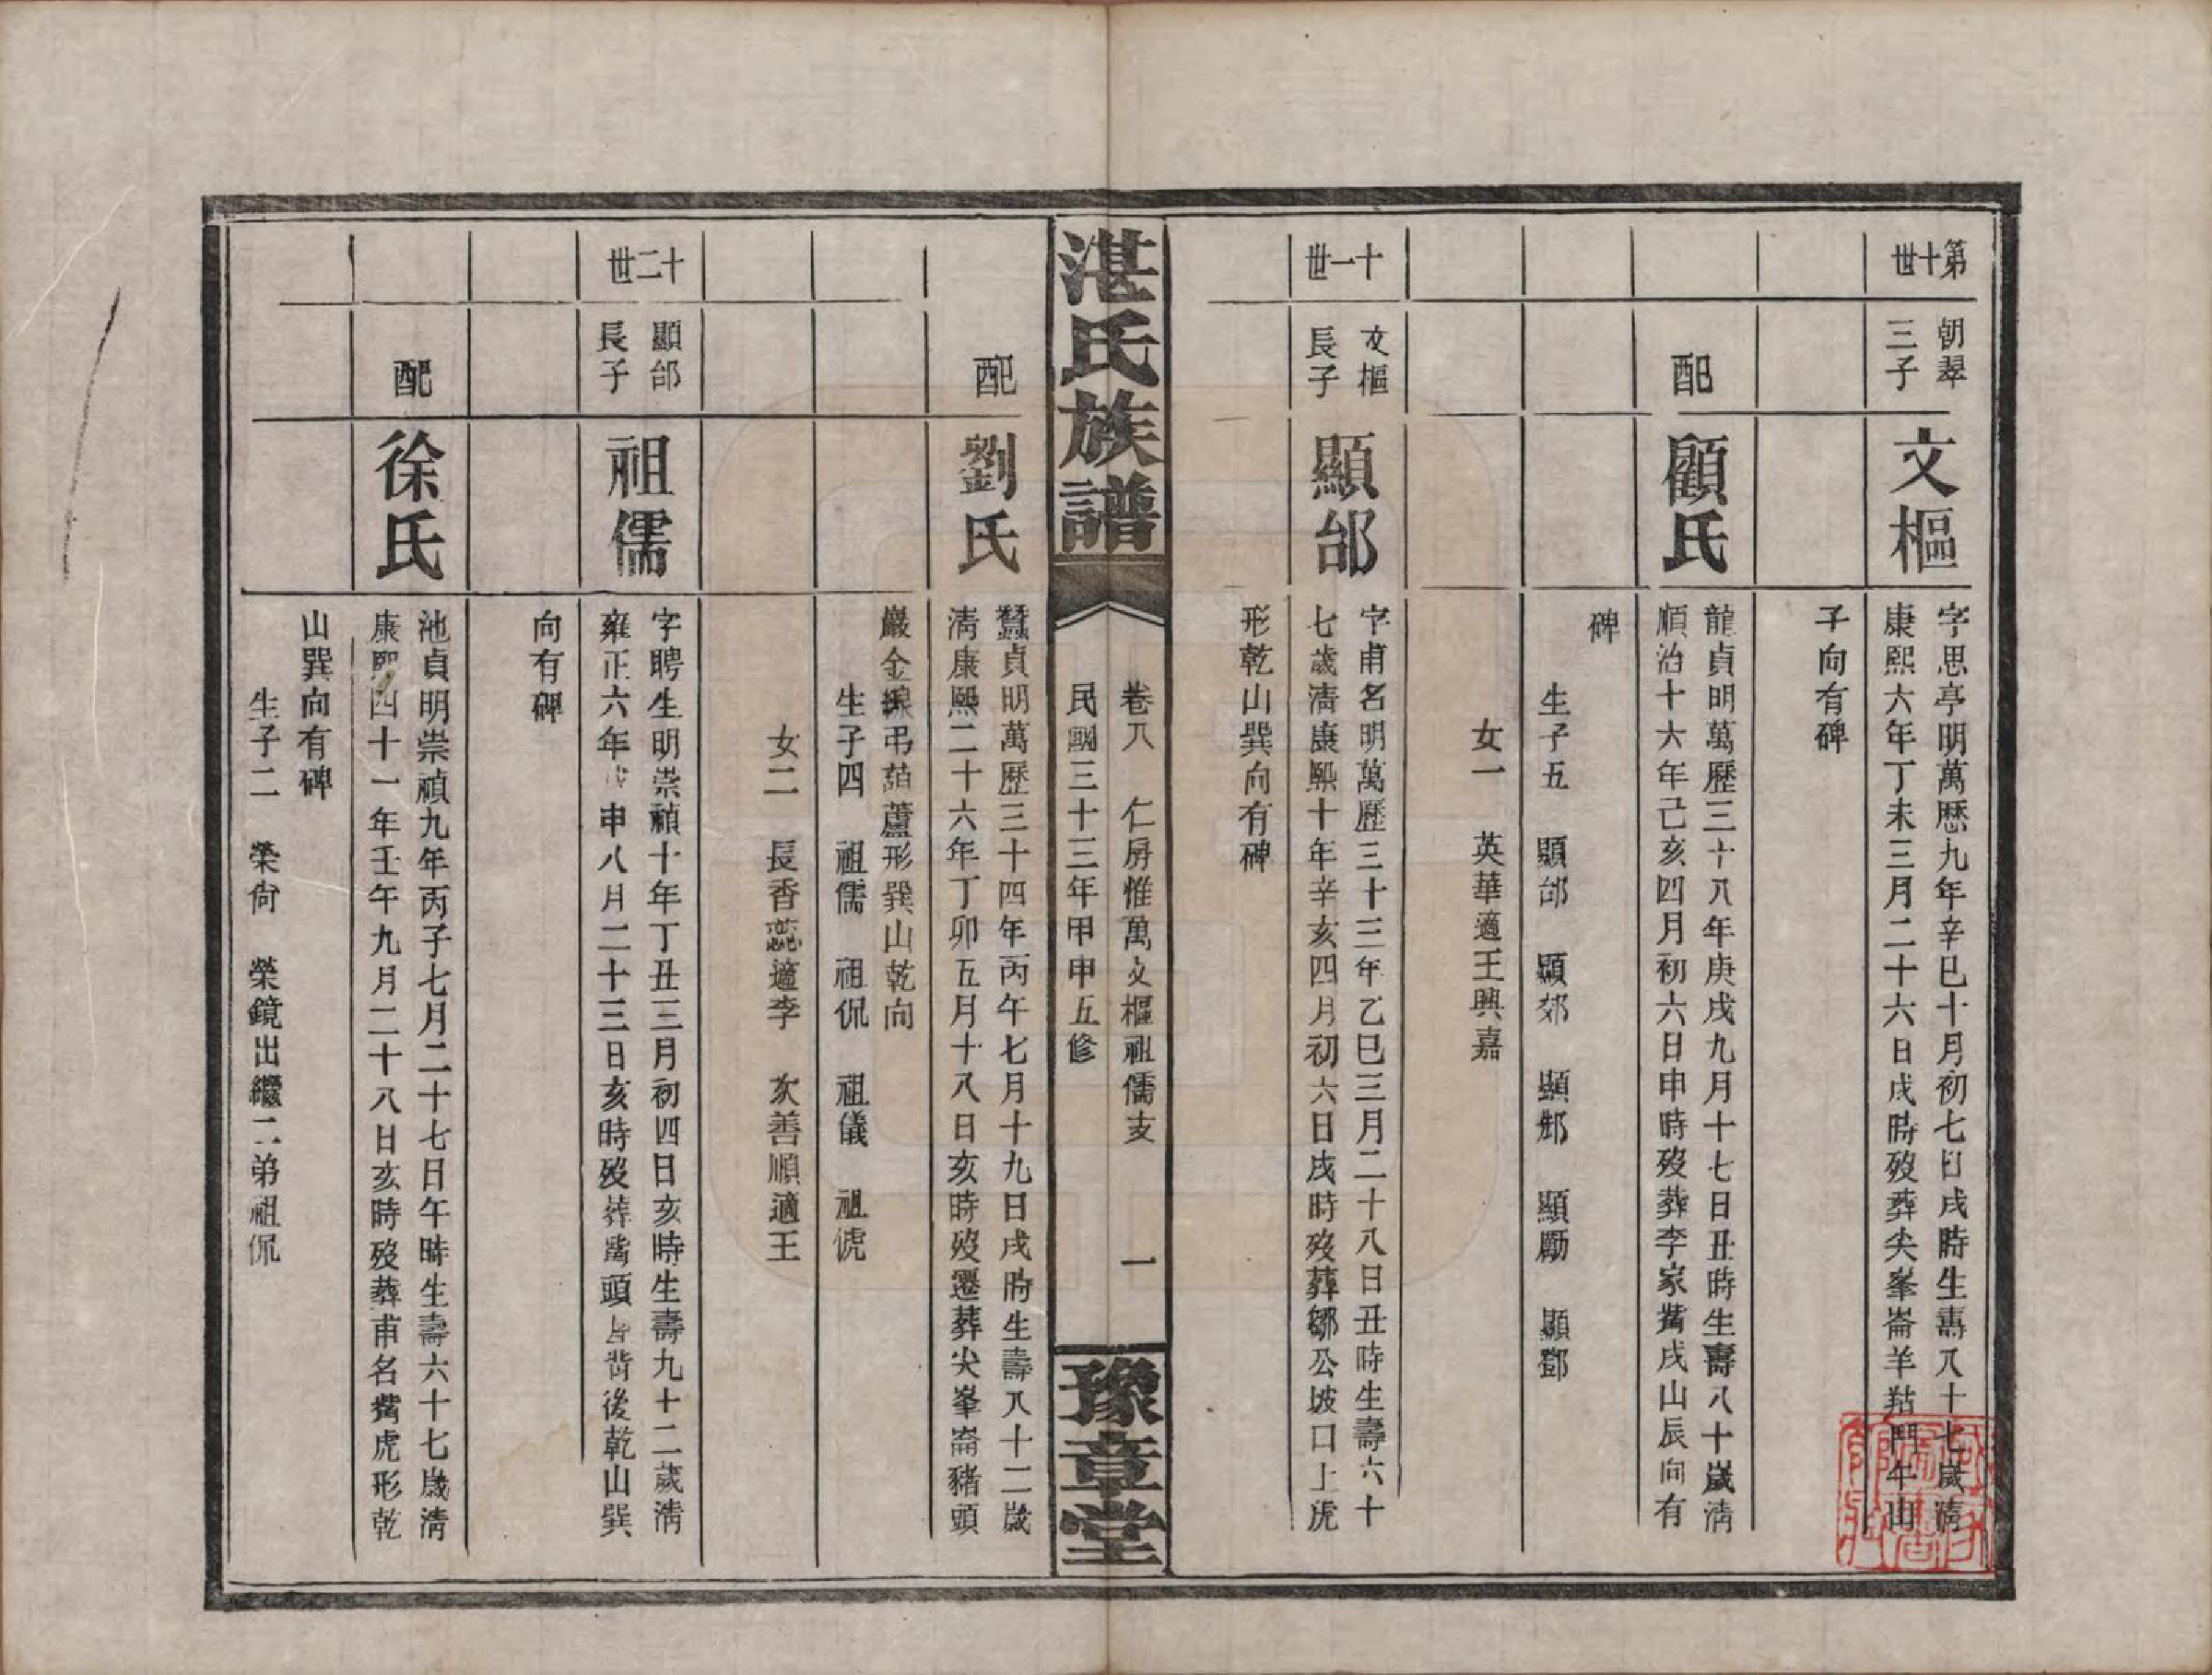 第十世
朝翠
三子
文樞
字思亭明萬歷九年辛巳十月初七日戌時生壽八十七歲清
康熙六年丁未三月二十六日戌時歿葬尖峯崙羊牯鬥午山
子向有碑
配
顧氏
龍貞明萬歷三十八年庚戌九月十七日丑時生壽八十歲清
順治十六年己亥四月初六日申時歿葬李家嘴戌山辰向有
碑
生子五 顯邰 顯郊 顯郕 顯勵 顯鄧
女一 英華適王興嘉
十一世
文樞
長子
顯邰
字甫名明萬歷三十三年乙巳三月二十八日丑時生壽六十
七歲清康熙十年辛亥四月初六日戌時歿葬鄒公坡口上虎
形乾山巽向有碑
湛氏族譜
卷八 仁房惟萬文樞祖儒支 一
民國三十三年甲申五修
豫章堂
配
劉氏
蠶貞明萬歷三十四年丙午七月十九日戌時生壽八十二歲
清康熙二十六年丁卯五月十八日亥時歿遷葬尖峯崙豬頭
巖金線弔葫蘆形巽山乾向
生子四 祖儒 祖侃 祖儀 祖俿
女二 長香蕊適李 次善順適王
十二世
顯邰
長子
祖儒
字聘生明崇禎十年丁丑三月初四日亥時生壽九十二歲清
雍正六年戊申八月二十三日亥時歿葬嘴頭屋背後乾山巽
向有碑
配
徐氏
池貞明崇禎九年丙子七月二十七日午時生壽六十七歲清
康熙四十一年壬午九月二十八日亥時歿葬甫名嘴虎形乾
山巽向有碑
生子二 榮尙 榮鏡出繼二弟祖侃